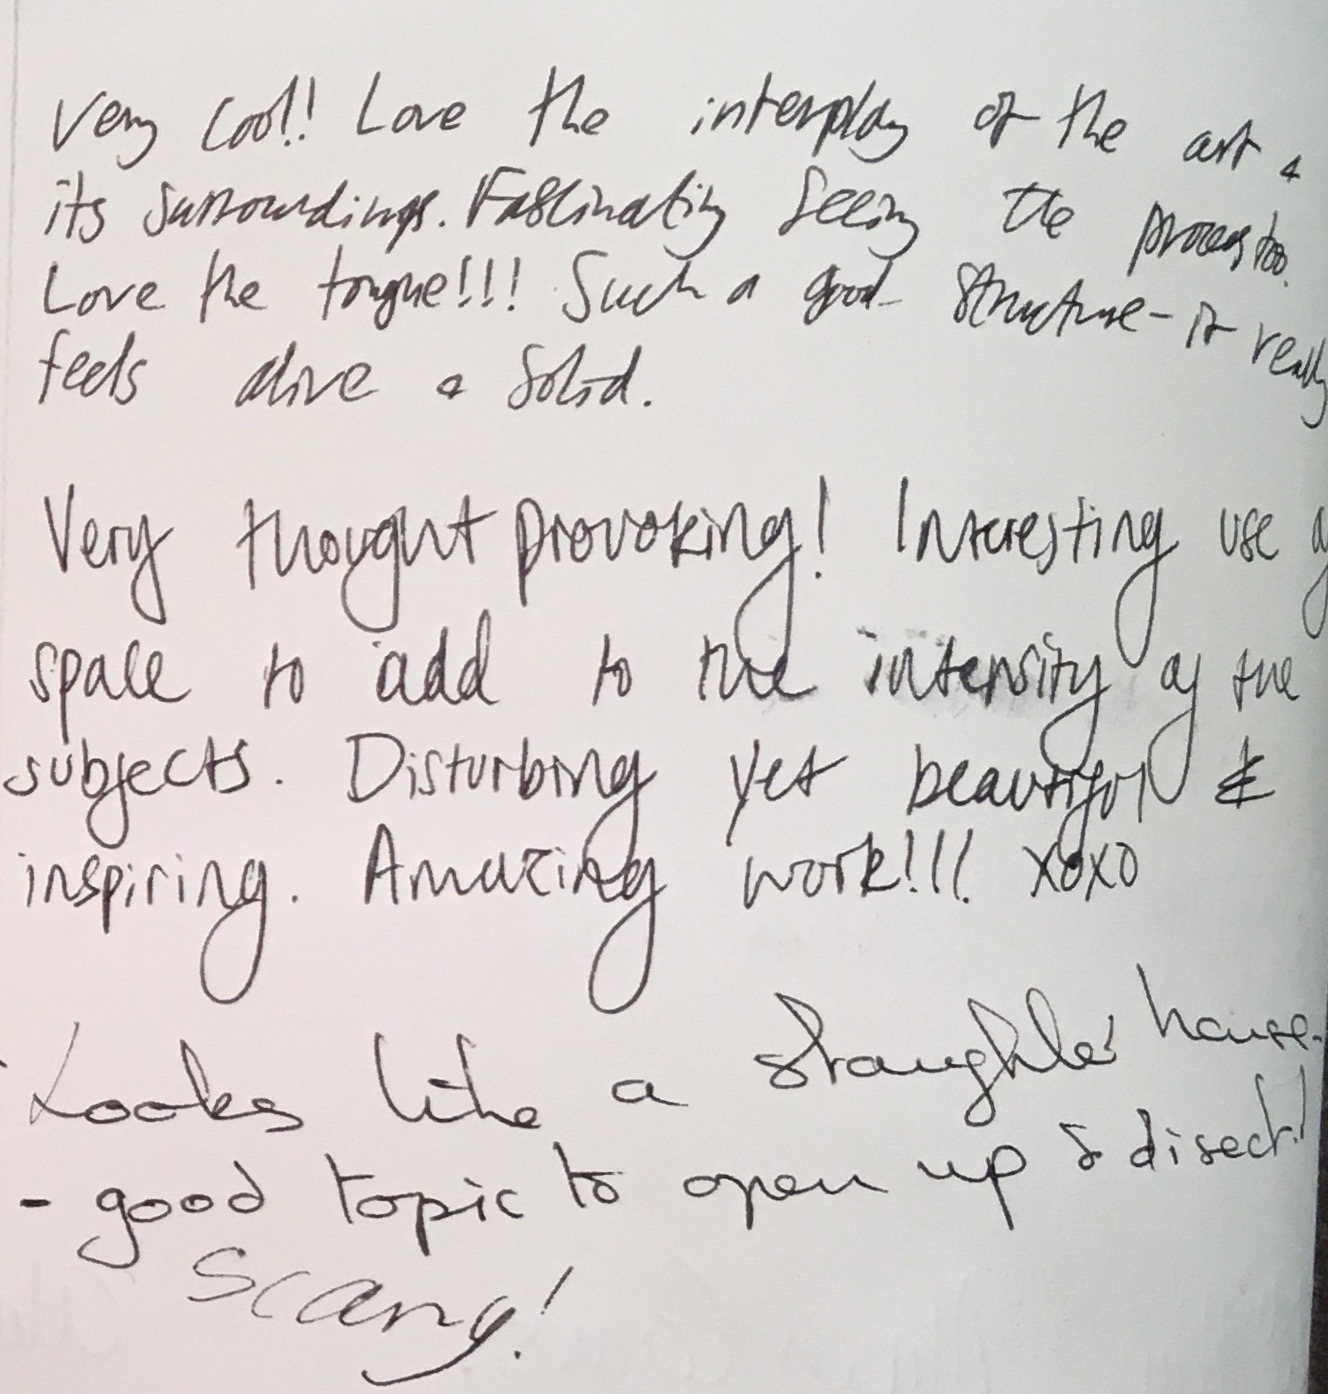 Very cool! Love the interplay of the art &
its surroundings. Fascinating seeing the process too.
Love the tongue!!! Such a good structure - it really
feels alive & solid.
Very thought provoking! Interesting use of
space to add to the intensity of the
subjects. Disturbing yet beautiful &
inspiring. Amazing work!!! xoxo
Looks like a slaughter house.
- good topic to open up & disect!
Scary!